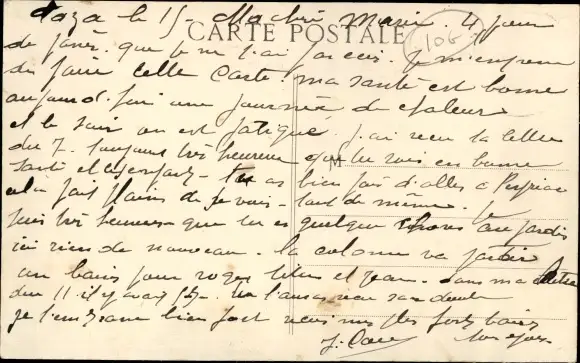 Taza le 15 - Ma chère Marie. 4 jours
CARTE POSTALE
106
de que je ne t'ai pas écris. Je m'empresse
de faire cette Carte. ma santé est bonne
aujourd'hui une journée de chaleur
et le soir on est fatigué. j'ai reçu ta lettre
du 7. toujours très heureux que tu sois en bonne
M
santé et les enfants - tu as bien fais d'aller a
cela fait plaisir de te voir tout de même. Je
suis très heureux que tu es quelque chose au jardin
ici rien de nouveau - la colonne va partir
un baiser pour Roger et Jean. dans ma lettre
du 11 il y avait 15 tu l'auras reçu sans doute
je t'embrasse bien fort reçois mes plus forts baisers
ton époux